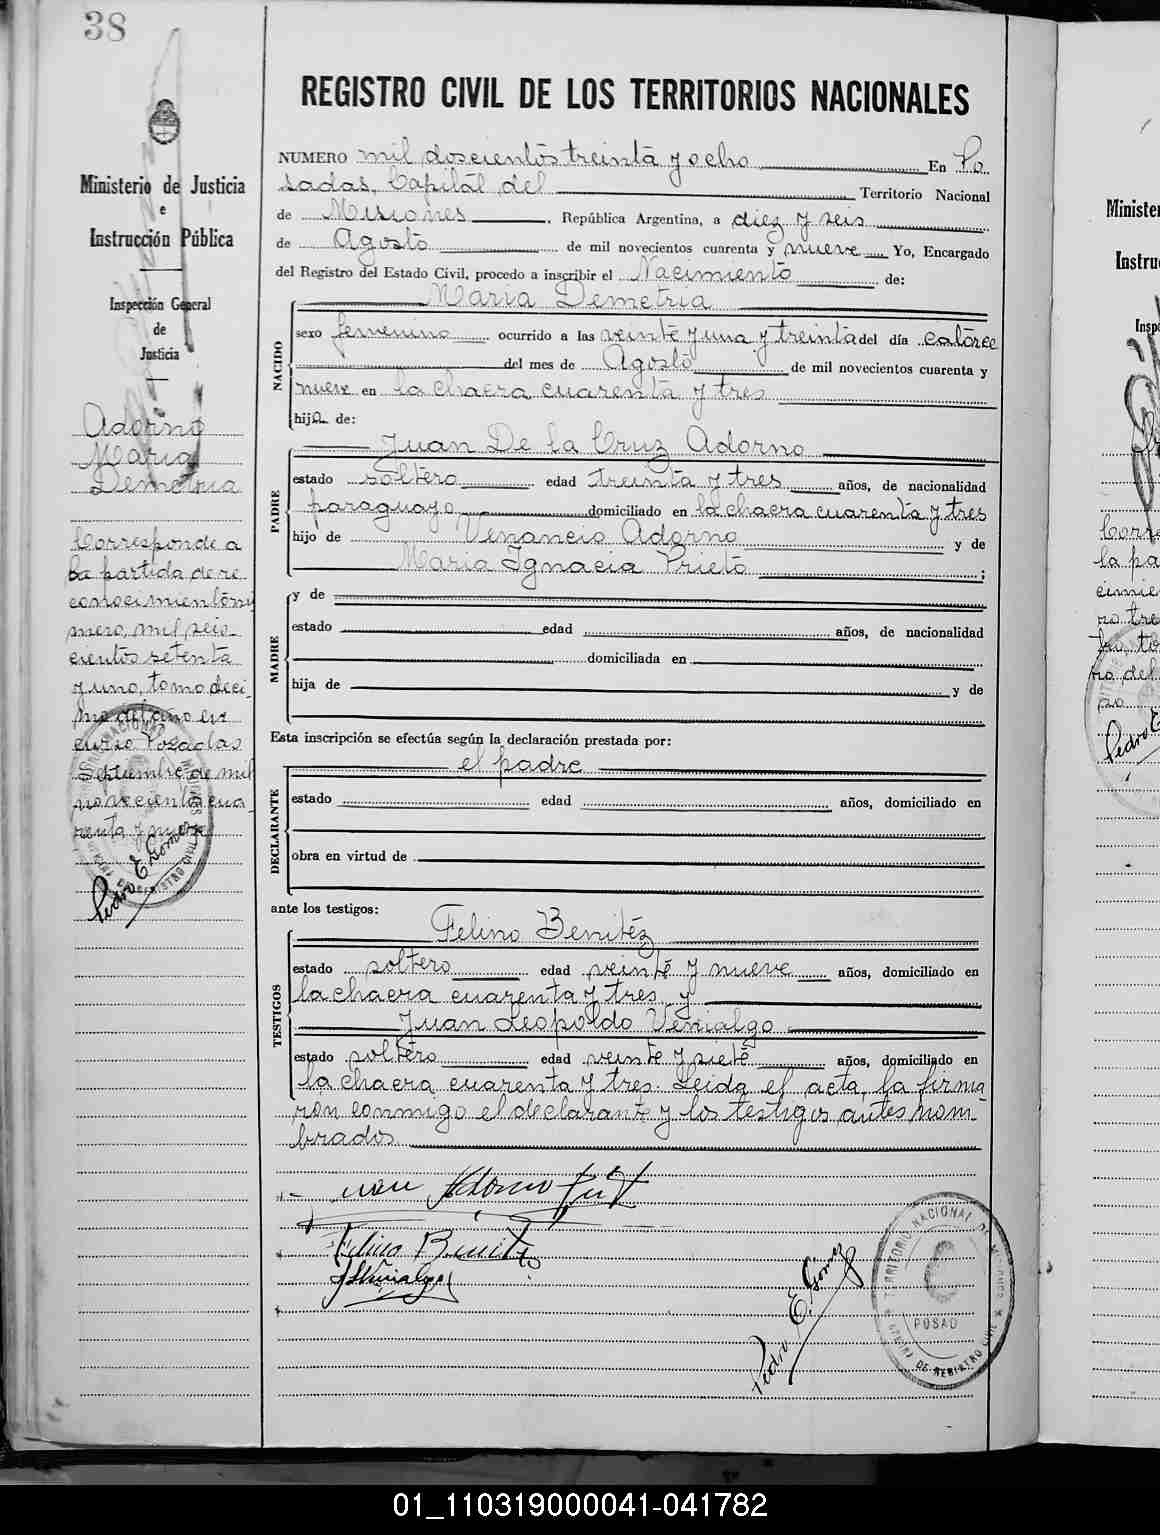 38
Ministerio de Justicia
e
Instrucción Pública
Inspección General
de
Justicia
Adorno
Maria
Demetria
Corresponde a
la partida de re
conocimiento nú
mero, mil seis-
cientos setenta
y uno, tomo deci-
mo del año en
curso Posadas
Septiembre de mil
novecientos cua-
renta y nueve
Pedro E. Gomez
REGISTRO CIVIL DE LOS TERRITORIOS NACIONALES
NUMERO mil doscientos treinta y ocho En Po
sadas, Capital del Territorio Nacional
de Misiones, República Argentina, a diez y seis
de Agosto de mil novecientos cuarenta y nueve Yo, Encargado
del Registro del Estado Civil, procedo a inscribir el Nacimiento de:
NACIDO
Maria Demetria
sexo femenino ocurrido a las veinte y una y treinta del día catorce
del mes de Agosto de mil novecientos cuarenta y
nueve en la chacra cuarenta y tres
hija de:
PADRE
Juan De la Cruz Adorno
estado soltero edad treinta y tres años, de nacionalidad
paraguayo domiciliado en la chacra cuarenta y tres
hijo de Venancio Adorno y de
Maria Ignacia Prieto ;
MADRE
y de
estado edad años, de nacionalidad
domiciliada en
hija de y de
Esta inscripción se efectúa según la declaración prestada por:
DECLARANTE
el padre
estado edad años, domiciliado en
obra en virtud de
ante los testigos:
TESTIGOS
Felino Benitéz
estado soltero edad veinte y nueve años, domiciliado en
la chacra cuarenta y tres y
Juan Leopoldo Venialgo
estado soltero edad veinte y siete años, domiciliado en
la chacra cuarenta y tres. Leída el acta, la firma-
rón conmigo el declarante y los testigos antes nom-
brados
Juan Adorno
Felino Benitez
Pedro E. Gomez
TERRITORIO NACIONAL DE MISIONES
POSAD
OFICINA DE REGISTRO CIVIL
Ministe
Instru
Insp
Corre
la pa
cimie
ro tre
Pedro E
01_110319000041-041782